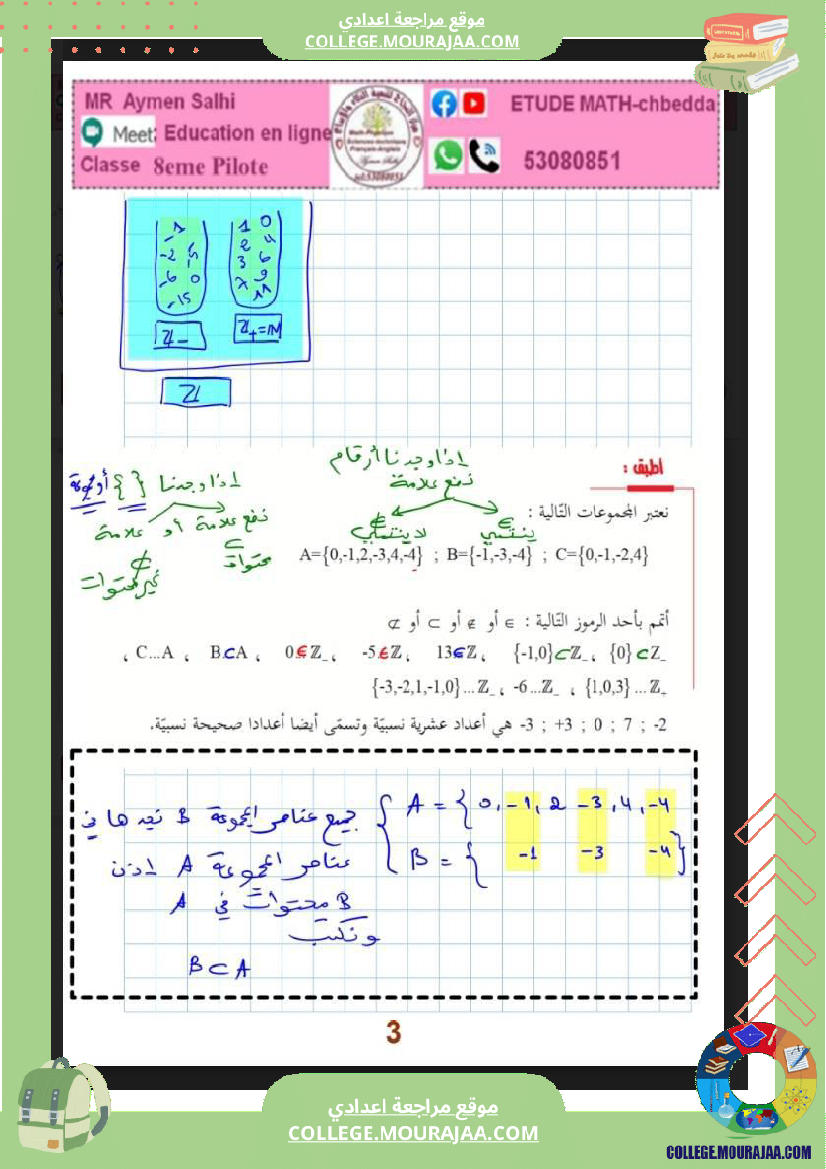 موقع مراجعة اعدادي
COLLEGE.MOURAJAA.COM
MR Aymen Salhi
Meet: Education en ligne
Classe 8eme Pilote
ETUDE MATH-chbedda
53080851
-1
-2 -5
-6 0
-15
1 0
2 4
3 6
7 9
11
ℤ₋
ℤ₊=IN
ℤ
أطبق :
إذا وجدنا أرقام
نضع علامة
∈ ينتمي
∉ لا ينتمي
إذا وجدنا { } أو
نضع علامة أو علامة
⊂ ⊄
نعتبر المجموعات التّالية :
A={0,-1,2,-3,4,-4} ; B={-1,-3,-4} ; C={0,-1,-2,4}
أتمّ بأحد الرموز التّالية : ∈ أو ∉ أو ⊂ أو ⊄
{0}⊂ℤ₋ ، {-1,0}⊂ℤ₋ ، 13∈ℤ ، -5∈ℤ ، 0∈ℤ₋ ، B⊂A ، C...A ،
{1,0,3}...ℤ₊ ، -6...ℤ₋ ، {-3,-2,1,-1,0}...ℤ₋
-2 ; 7 ; 0 ; +3 ; -3 هي أعداد عشرية نسبيّة وتسمّى أيضا أعدادا صحيحة نسبيّة.
A = { 0, -1, 2 -3, 4, -4
B = { -1 -3 -4 }
جميع عناصر المجموعة B نجدها في
عناصر المجموعة A إذن
B محتوات في A
ونكتب
B ⊂ A
3
موقع مراجعة اعدادي
COLLEGE.MOURAJAA.COM
COLLEGE.MOURAJAA.COM